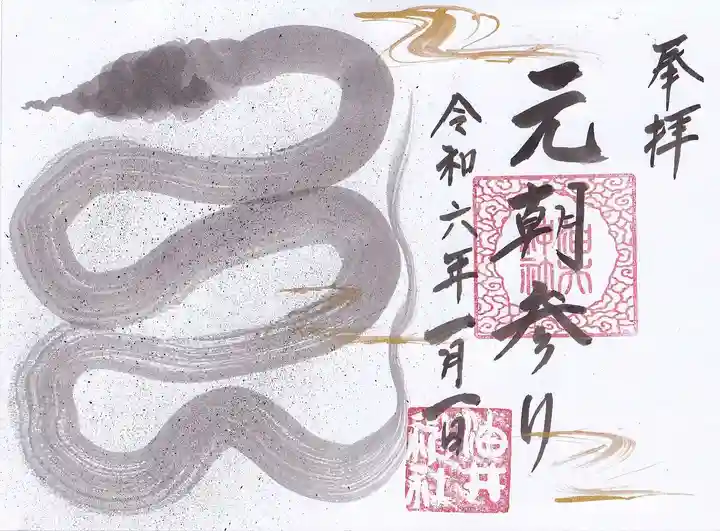 奉拝
元朝参り
令和六年一月一日
油井
神社